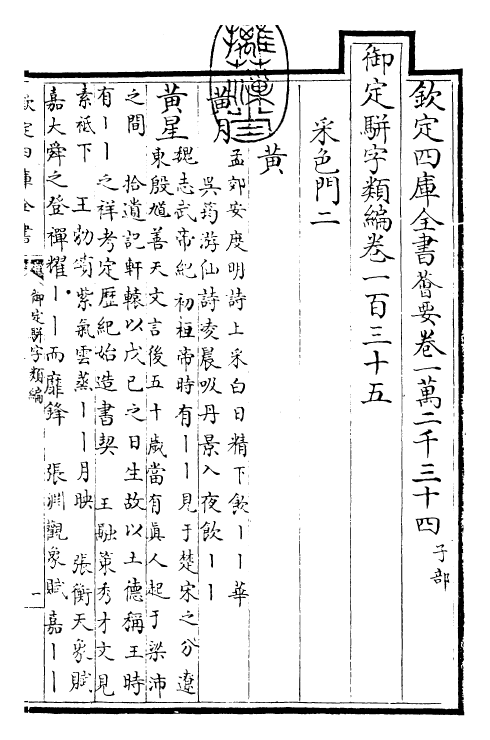 欽定四庫全書薈要卷一萬二千三十四 子部
御定駢字類編卷一百三十五
采色門二
黃
黃月
孟郊安度明詩上采白日精下飲丨丨華
吳筠游仙詩凌晨吸丹景入夜飲丨丨
黃星
魏志武帝紀初桓帝時有丨丨見于楚宋之分遼
東殷馗善天文言後五十歲當有真人起于梁沛
之間 拾遺記軒轅以戊己之日生故以土德稱王時
有丨丨之祥考定歷紀始造書契 王融策秀才文見
素祗下 王勃 紫氣雲蒸丨丨月映 張衡天象賦
嘉大舜之登禪耀丨丨而靡鋒 張淵觀象賦嘉丨丨
欽定四庫全書
御定駢字類編
一